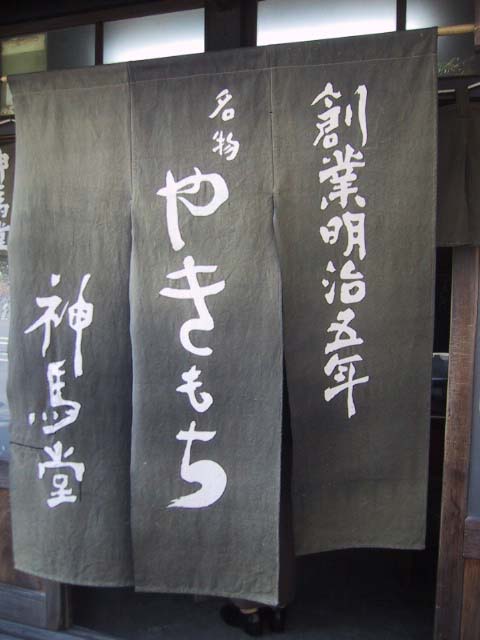 創業明治五年
名物
やきもち
神馬堂
神馬堂